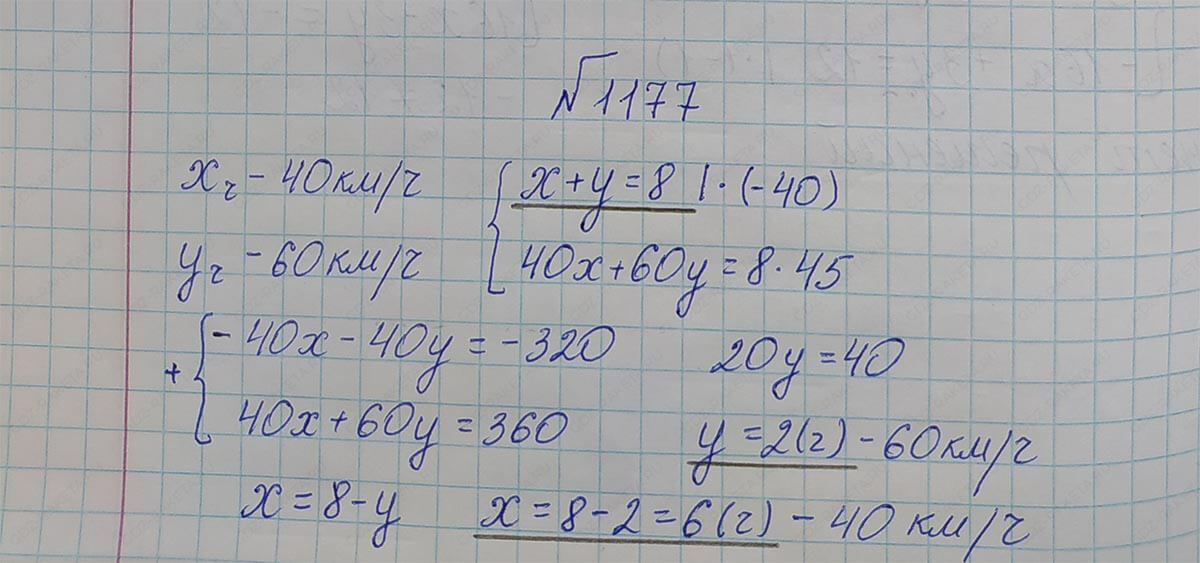 №1177
x ч - 40 км/ч
y ч - 60 км/ч
{ x + y = 8 | · (-40)
40x + 60y = 8 · 45
+ { - 40x - 40y = -320
40x + 60y = 360
20y = 40
y = 2(ч) - 60 км/ч
x = 8 - y
x = 8 - 2 = 6(ч) - 40 км/ч